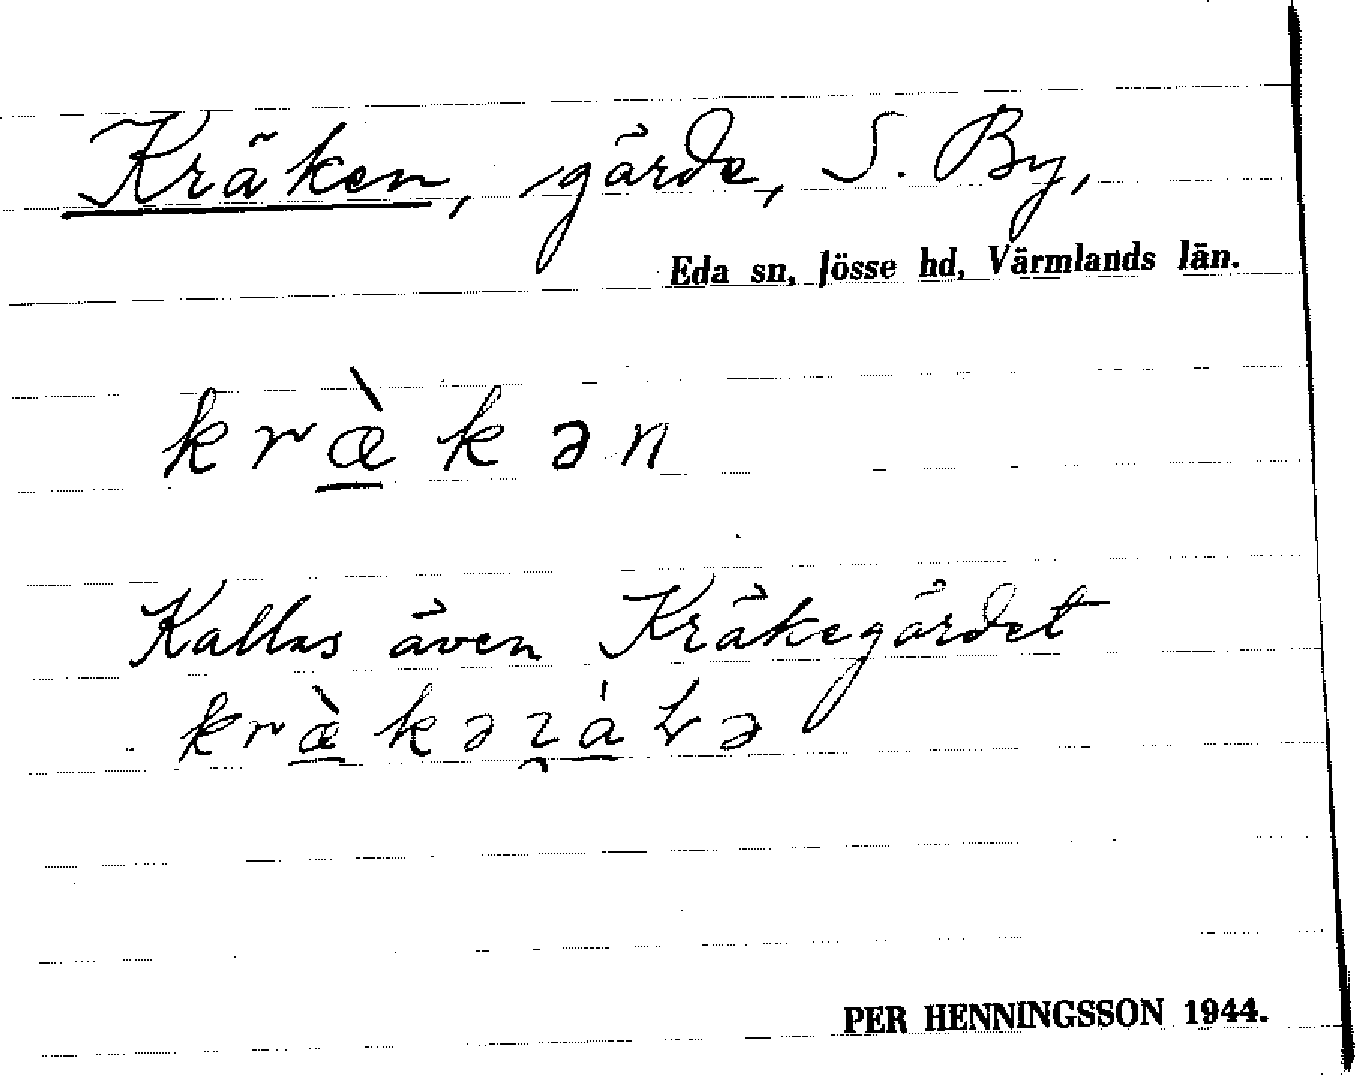 Kräken, gärde, S. By,
Eda sn, Jösse hd, Värmlands län.
kræ̠̀kən
Kallas även Kräkegärdet
PER HENNINGSSON 1944.